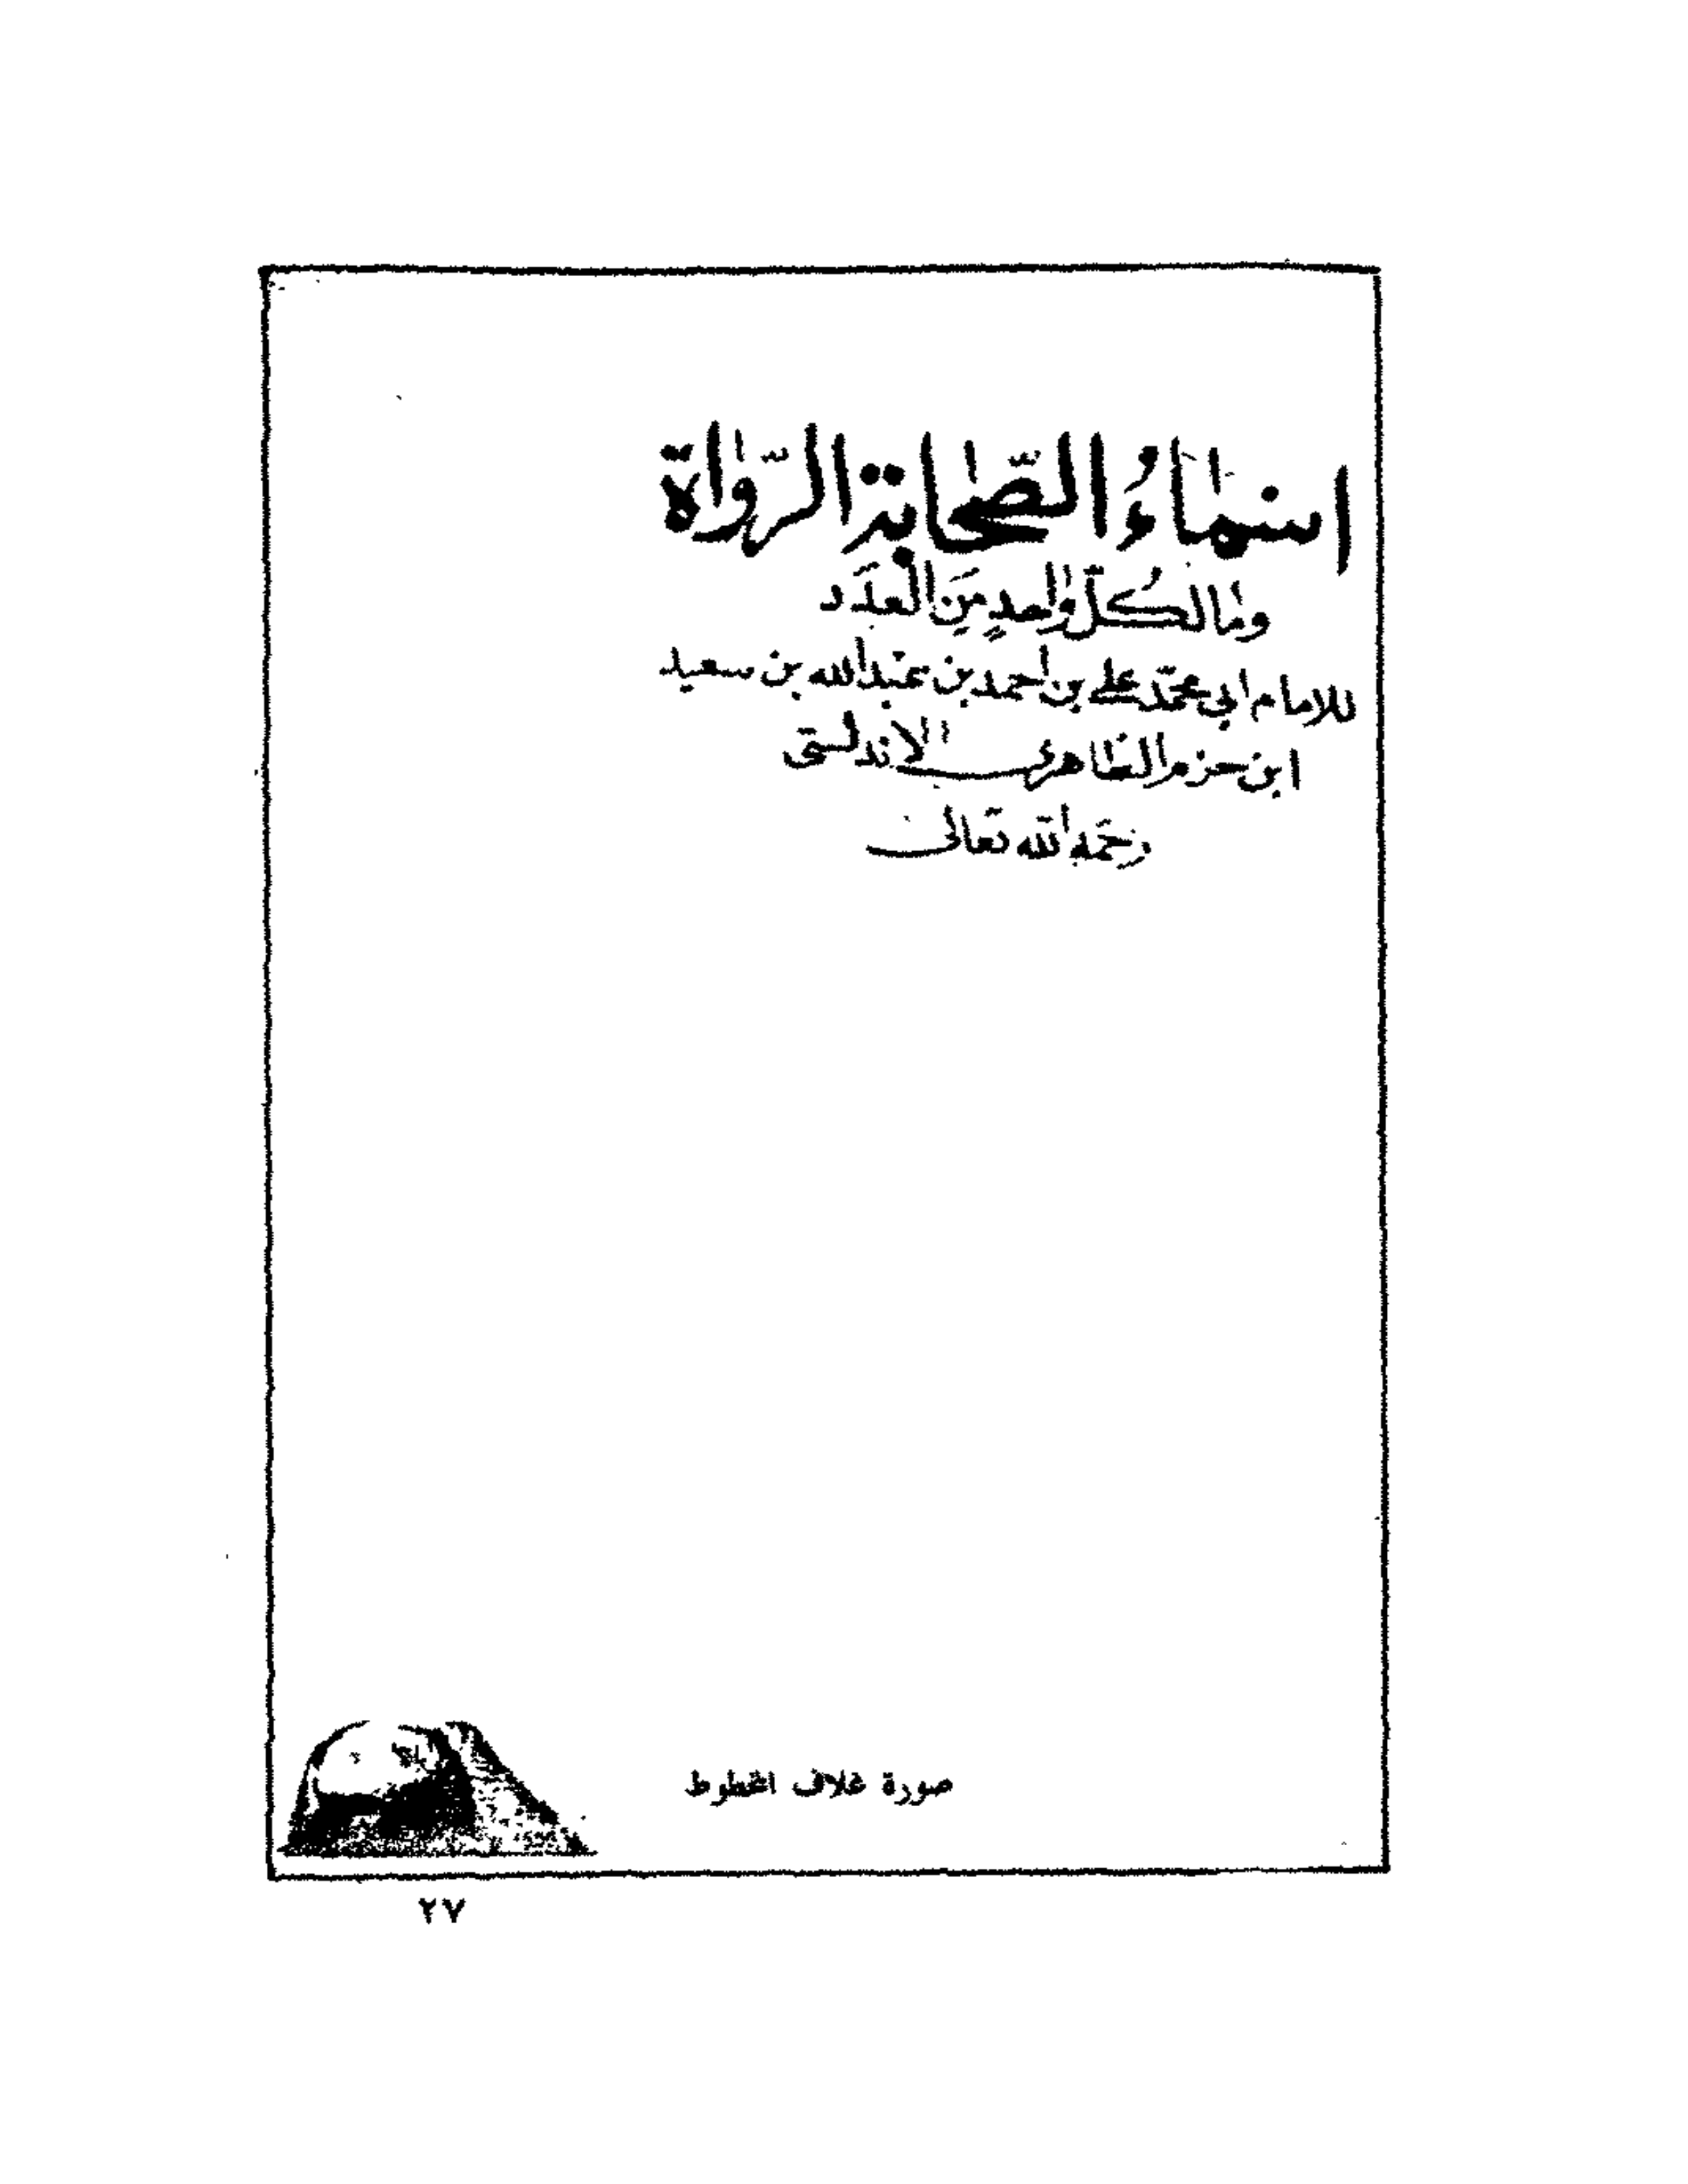 اسماءُ الصّحابة الرّواة
وما لكُلّ واحدٍ مَن العدَد
للامام ابي محمّد علي بن احمد بن عبدالله بن سعيد
ابن حزم الظاهري الاندلسي
رحمَه الله تعالى
صورة غلاف المخطوط
٢٧